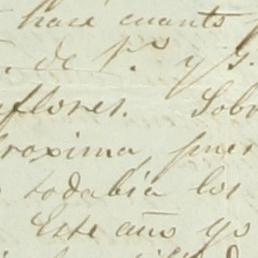 hace cuanto
. de P.º y G.
flores. Sobr
roxima, puer
todabia los
Este año yo